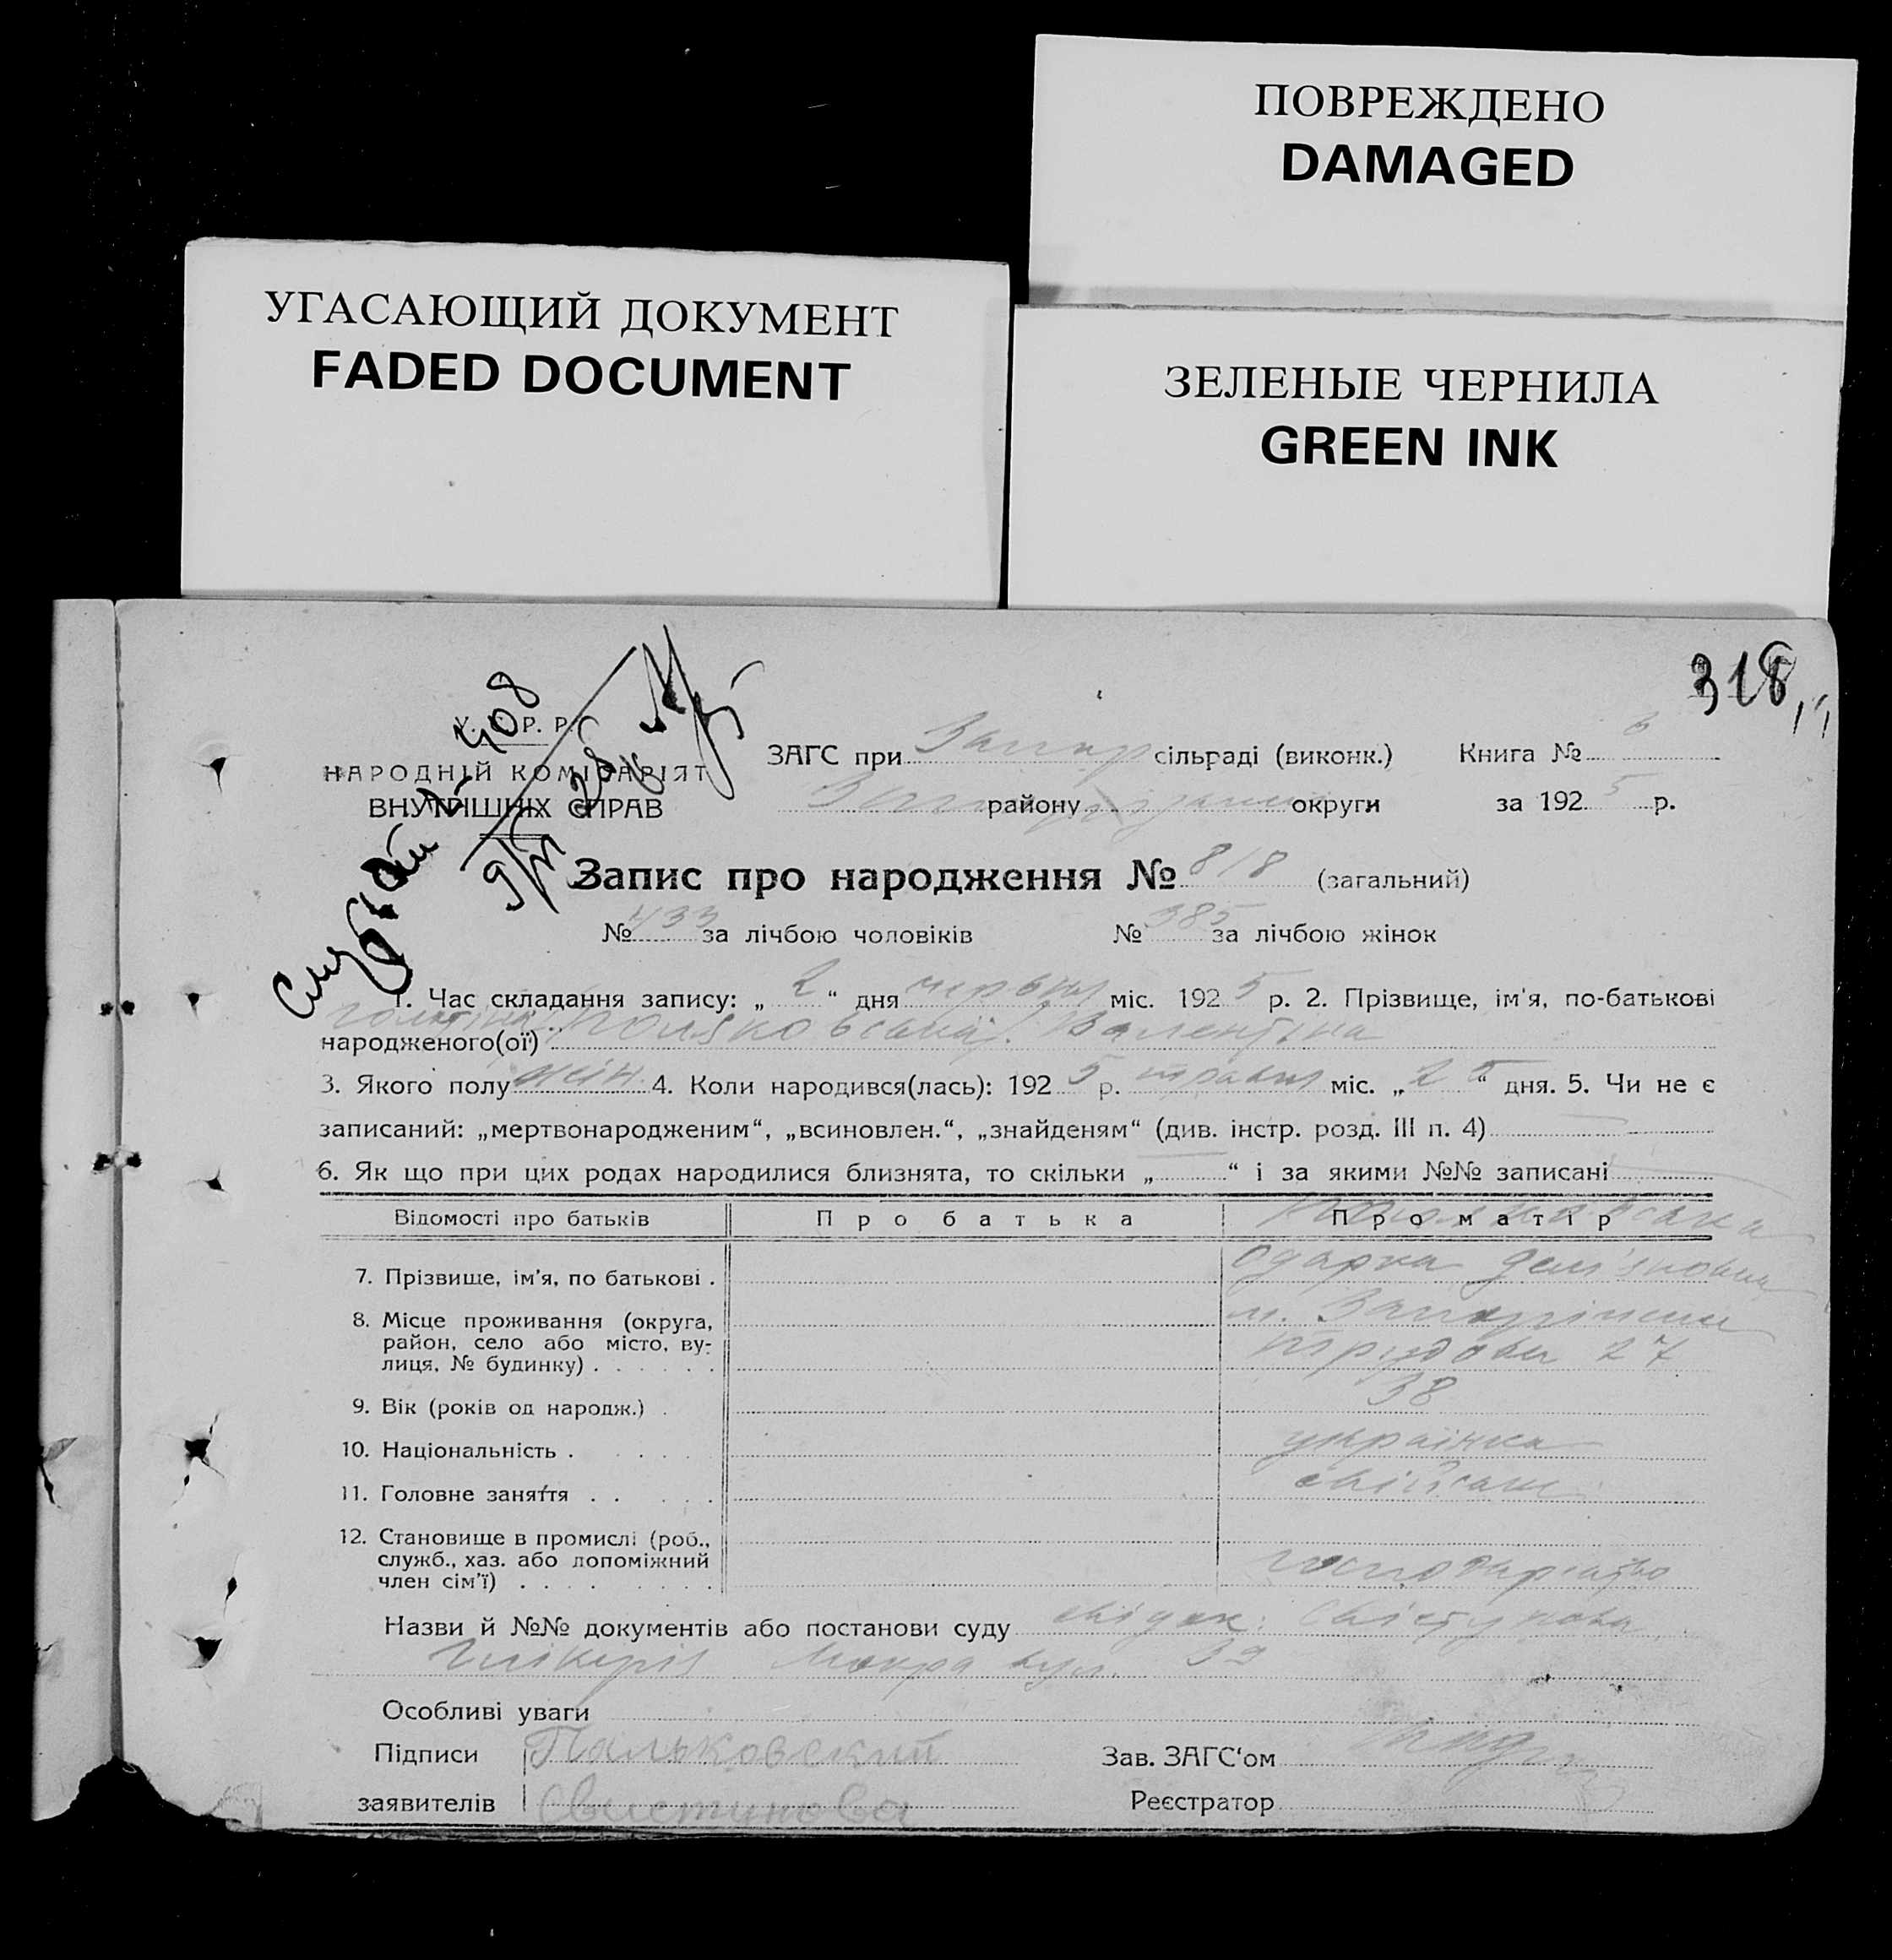 ПОВРЕЖДЕНО
DAMAGED
УГАСАЮЩИЙ ДОКУМЕНТ
FADED DOCUMENT
ЗЕЛЕНЫЕ ЧЕРНИЛА
GREEN INK
318
У. С. Р. Р.
НАРОДНІЙ КОМІСАРІЯТ
ВНУТРІШНІХ СПРАВ
ЗАГС при Запор сільраді (виконк.) Книга № 6
району округи за 1925 р.
Запис про народження № 818 (загальний)
№ 433 за лічбою чоловіків № 385 за лічбою жінок
1. Час складання запису: „ 2 “ дня червня міс. 1925 р. 2. Прізвище, ім'я, по-батькові
народженого(ої) Валентіна
3. Якого полу жін. 4. Коли народився(лась): 1925 р. травня міс. „ 25 “ дня. 5. Чи не є
записаний: „мертвонародженим“, „всиновлен.“, „знайденям“ (див. інстр. розд. III п. 4)
6. Як що при цих родах народилися близнята, то скільки „ “ і за якими №№ записані
Відомості про батьків Про батька Про матір
7. Прізвище, ім'я, по батькові . одарка Дем'яновна
8. Місце проживання (округа, м. Запоріжжя
район, село або місто, ву-
лиця, № будинку) . . . . . . трудова 27
9. Вік (років од народж.) . 38
10. Національність . . . . українка
11. Головне заняття . . . . .
12. Становище в промислі (роб.,
служб., хаз. або допоміжний господарство
член сім'ї) . . . . . . . .
Назви й №№ документів або постанови суду свідок: Свістунова
Глікерія Мокра вул. 39
Особливі уваги
Підписи Пальковский Зав. ЗАГС'ом
заявителів Свистунова Реєстратор